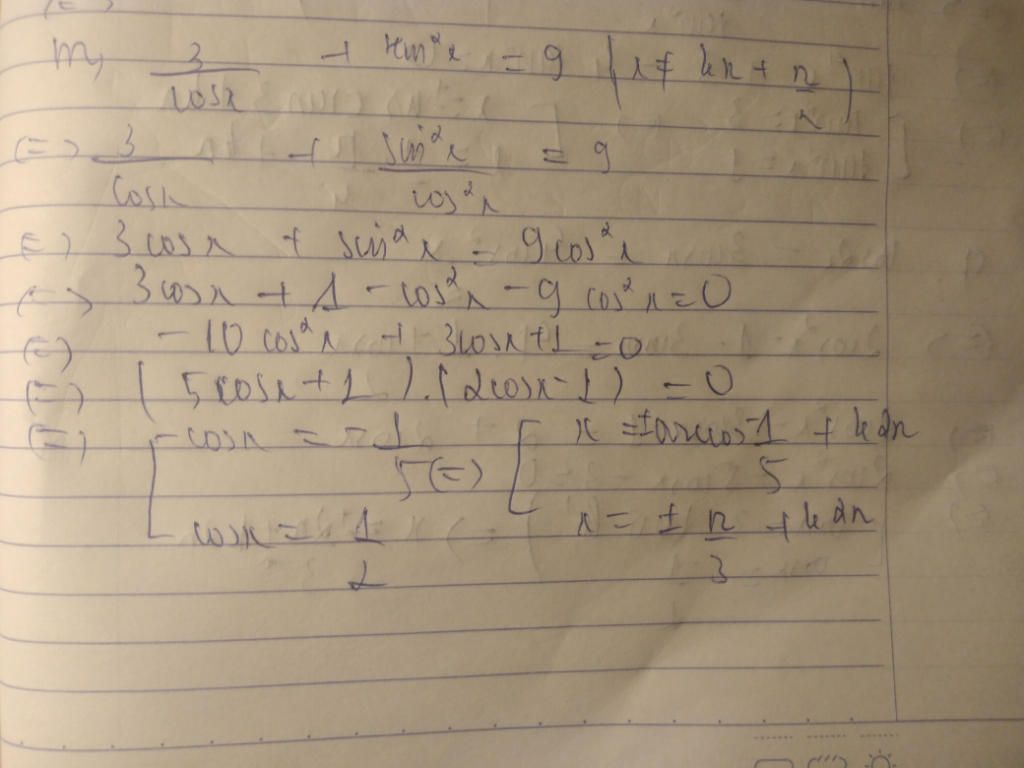 m, 3/cosx + tan²x = 9 (x ≠ kπ + π/2)
(=) 3/cosx + sin²x/cos²x = 9
(=) 3cosx + sin²x = 9cos²x
(=) 3cosx + 1 - cos²x - 9 cos²x = 0
(=) -10 cos²x + 3cosx + 1 = 0
(=) (5cosx + 1).(2cosx - 1) = 0
(=) [ cosx = -1/5 (=) [ x = ±arccos -1/5 + k2π
cosx = 1/2 x = ± π/3 + k2π